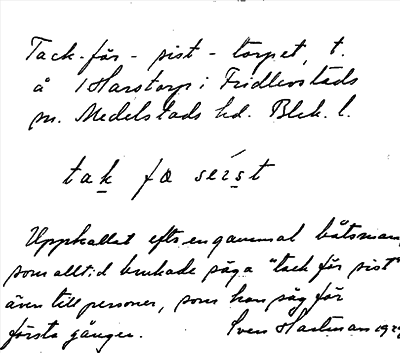 Tack-för-sist-torpet, t.
å 1 Harstorp i Fridlevstads
sn. Medelstads hd. Blek. l.
tak fœ seist
Uppkallat efter en gammal båtsman,
som alltid brukade säga "tack för sist"
även till personer, som han såg för
första gången. Sven Hartman 19